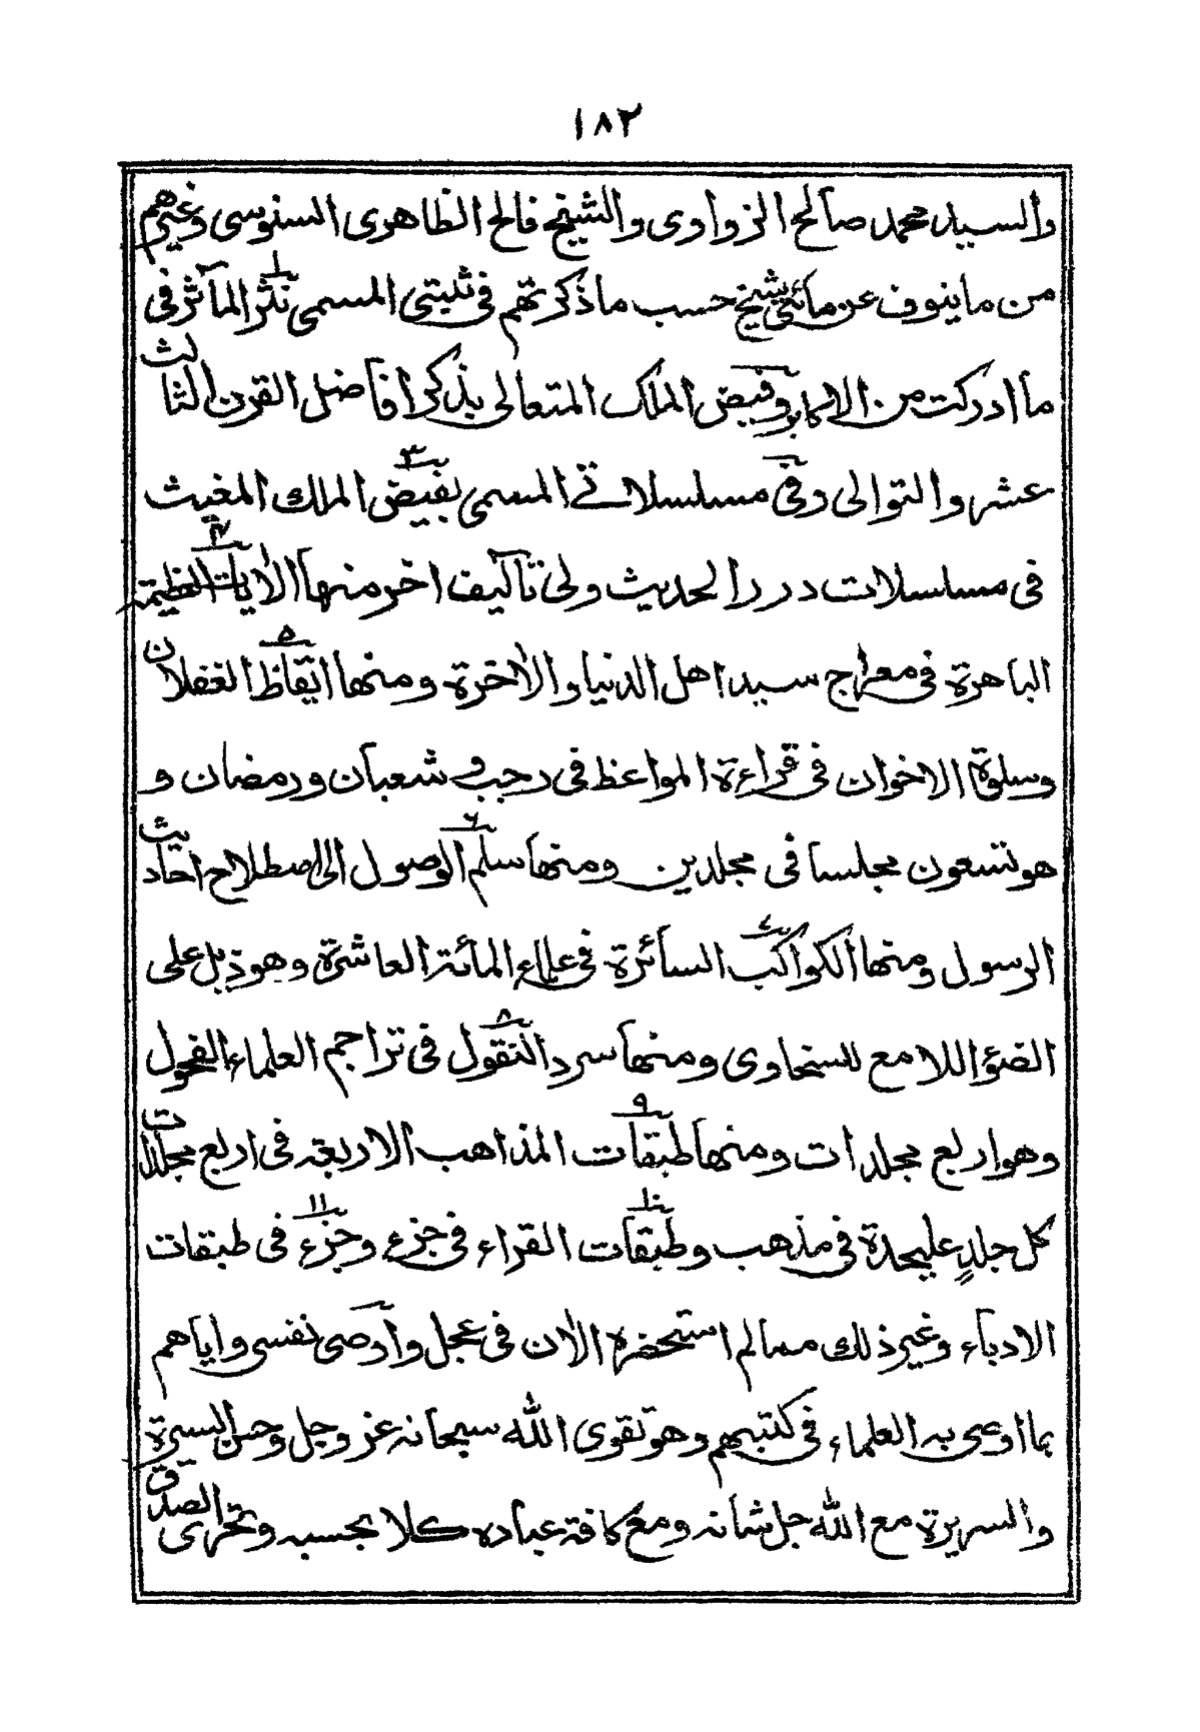 ١٨٢
والسيد محمد صالح الزواوى والشيخ فالح الظاهرى السنوسى وغيرهم
من ما ينوف عن مائتى شيخ حسب ما ذكرتهم فى ثبتى المسمى نثر المآثر فى
ما ادركت من الاكابر وفيض الملك المتعالى بذكر افاضل القرن الثالث
عشر والتوالى وفى مسلسلاتى المسمى بفيض الملك المغيث
فى مسلسلات درر الحديث ولى تآليف اخر منها الآيات العظيمة
الباهرة فى معراج سيد اهل الدنيا والآخرة ومنها ايقاظ الغفلان
وسلوة الاخوان فى قراءة المواعظ فى رجب وشعبان ورمضان و
هو تسعون مجلسا فى مجلدين ومنها سلم الوصول الى اصطلاح احاديث
الرسول ومنها الكواكب السائرة فى علماء المائة العاشرة وهو ذيل على
الضوء اللامع للسخاوى ومنها سرد النقول فى تراجم العلماء الفحول
وهو اربع مجلدات ومنها طبقات المذاهب الاربعة فى اربع مجلدات
كل جلد عليحدة فى مذهب وطبقات القراء فى جزء وجزء فى طبقات
الادباء وغير ذلك مما لم استحضره الآن فى عجل وأوصى نفسى واياهم
بما اوصى به العلماء فى كتبهم وهو تقوى الله سبحانه عز وجل وحسن السيرة
والسريرة مع الله جل شانه ومع كافة عباده كلا بحسبه وتحرى الصدق